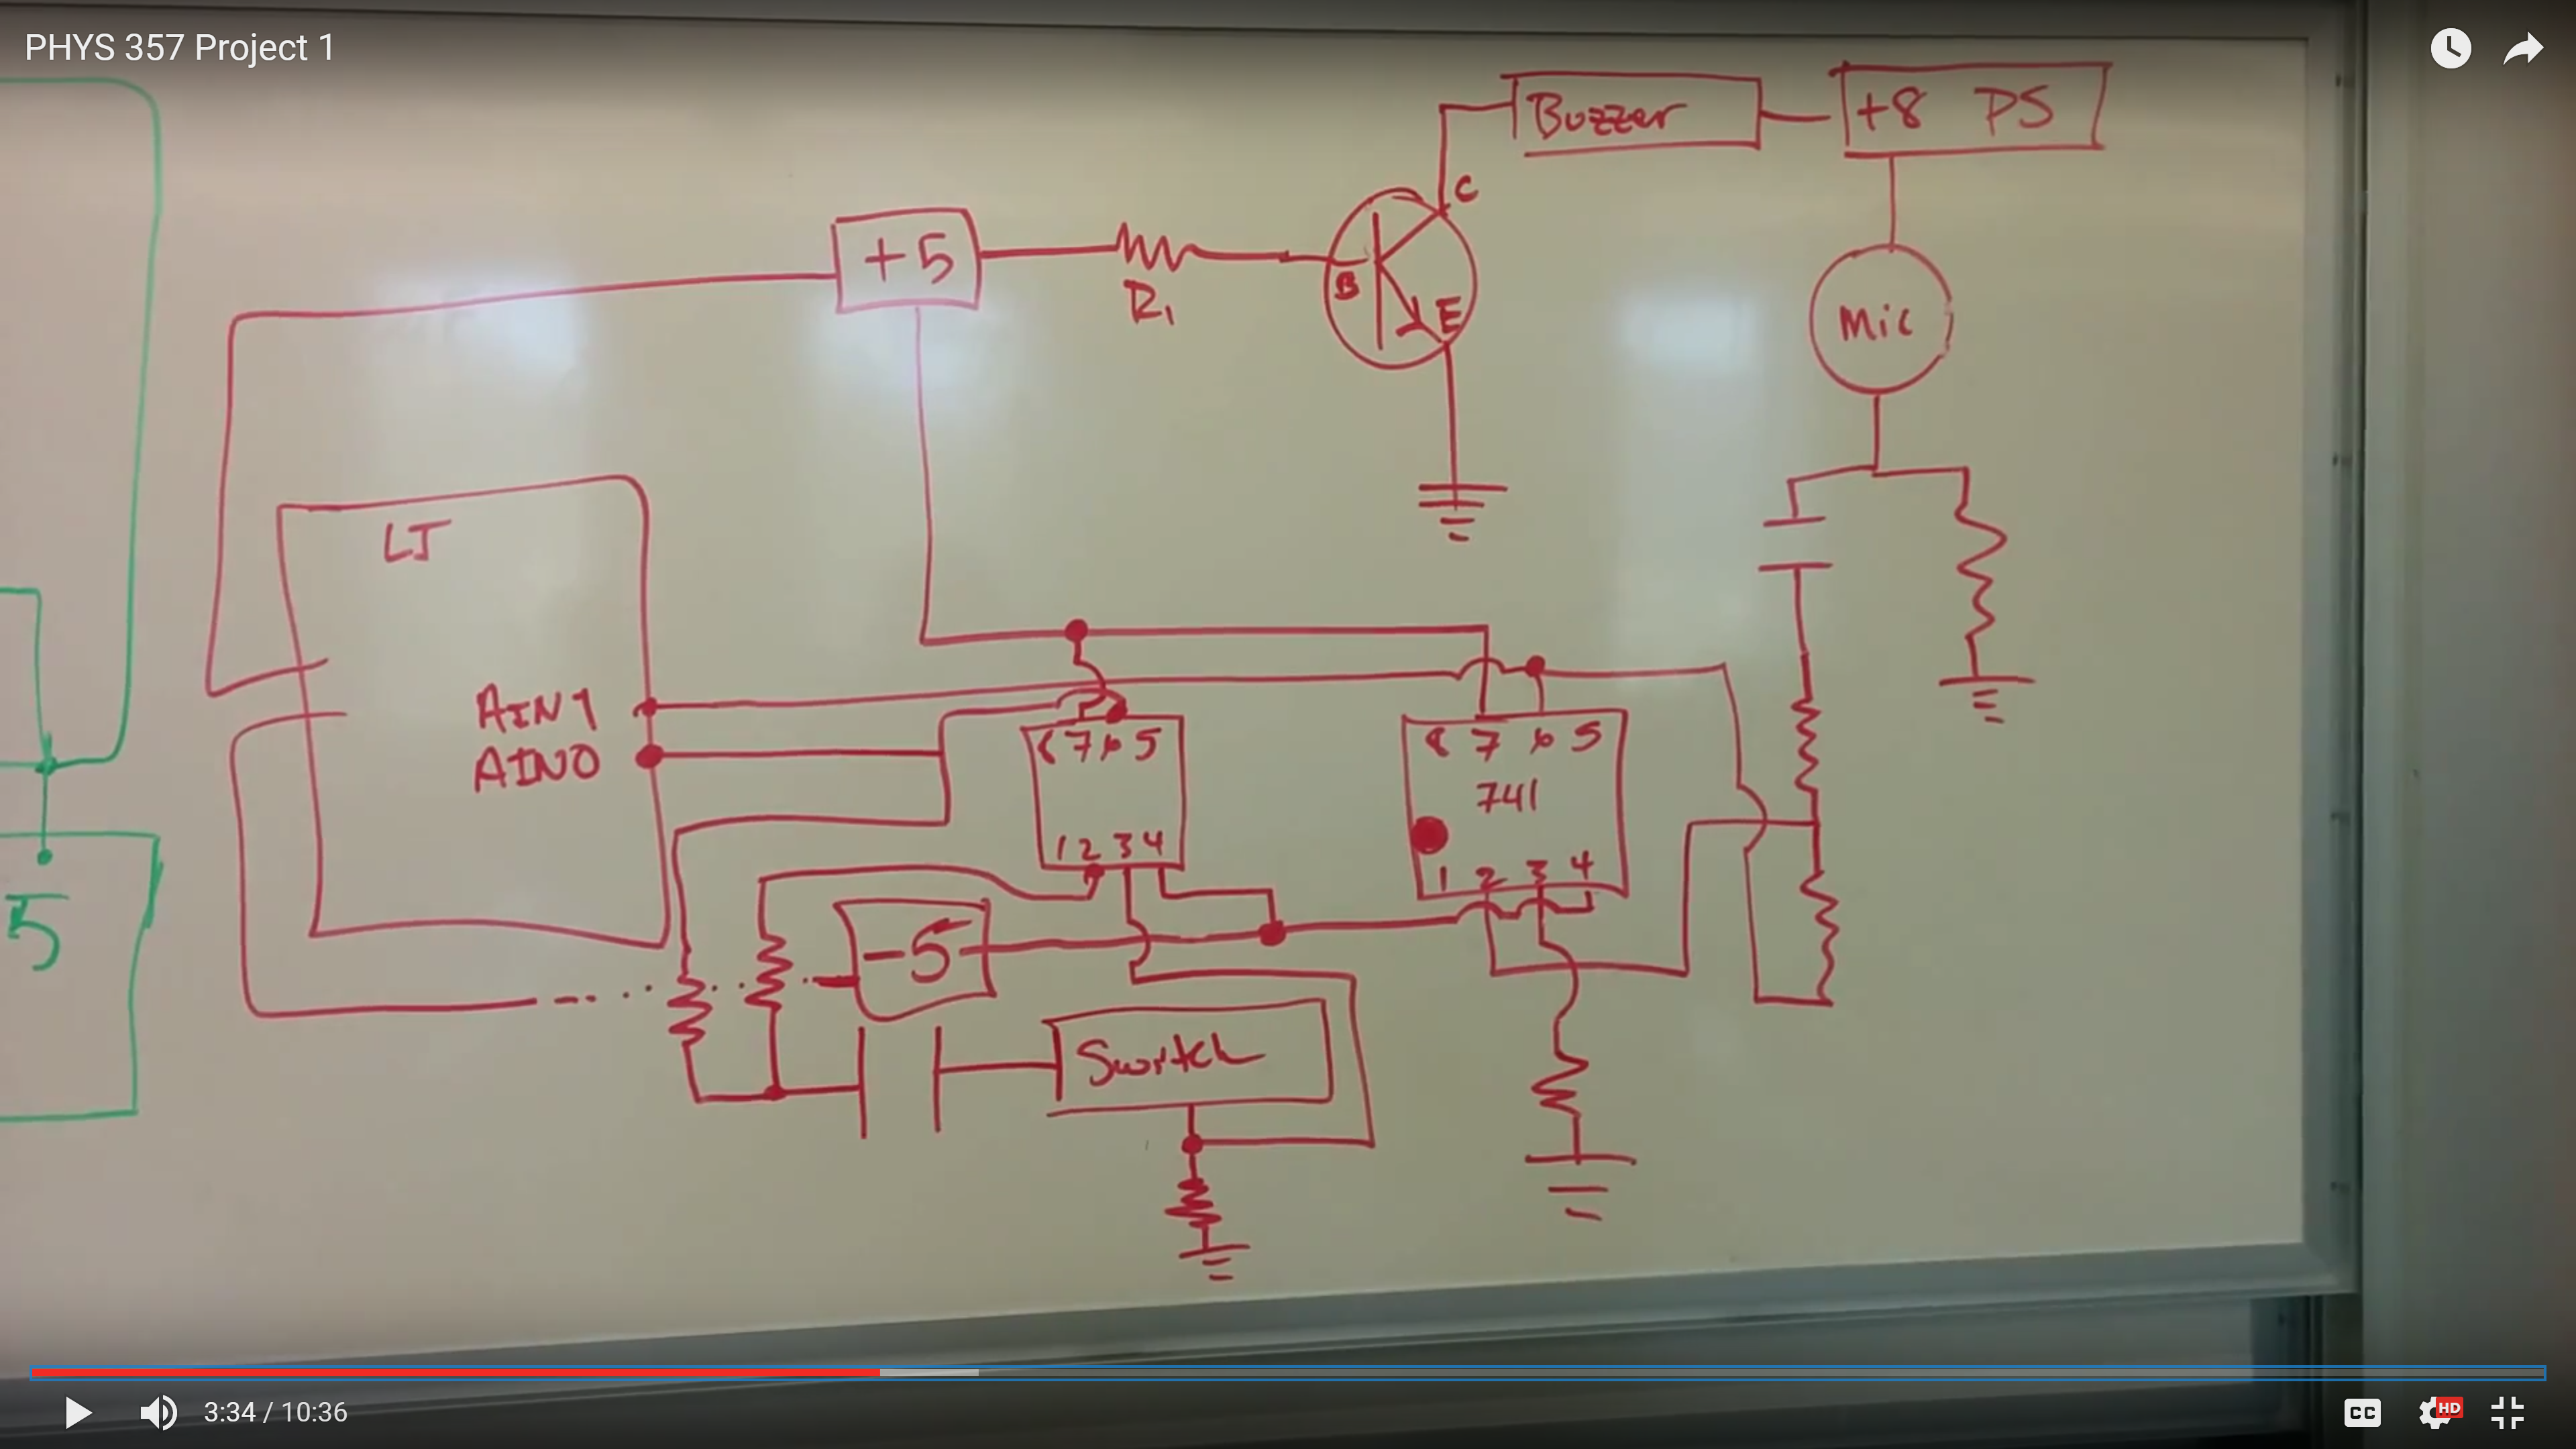 PHYS 357 Project 1
Buzzer
+8 PS
C
+5
R1
B
E
Mic
LJ
AIN1
AIN0
8 7 6 5
8 7 6 5
741
1 2 3 4
1 2 3 4
5
-5
Switch
3:34 / 10:36
CC
HD